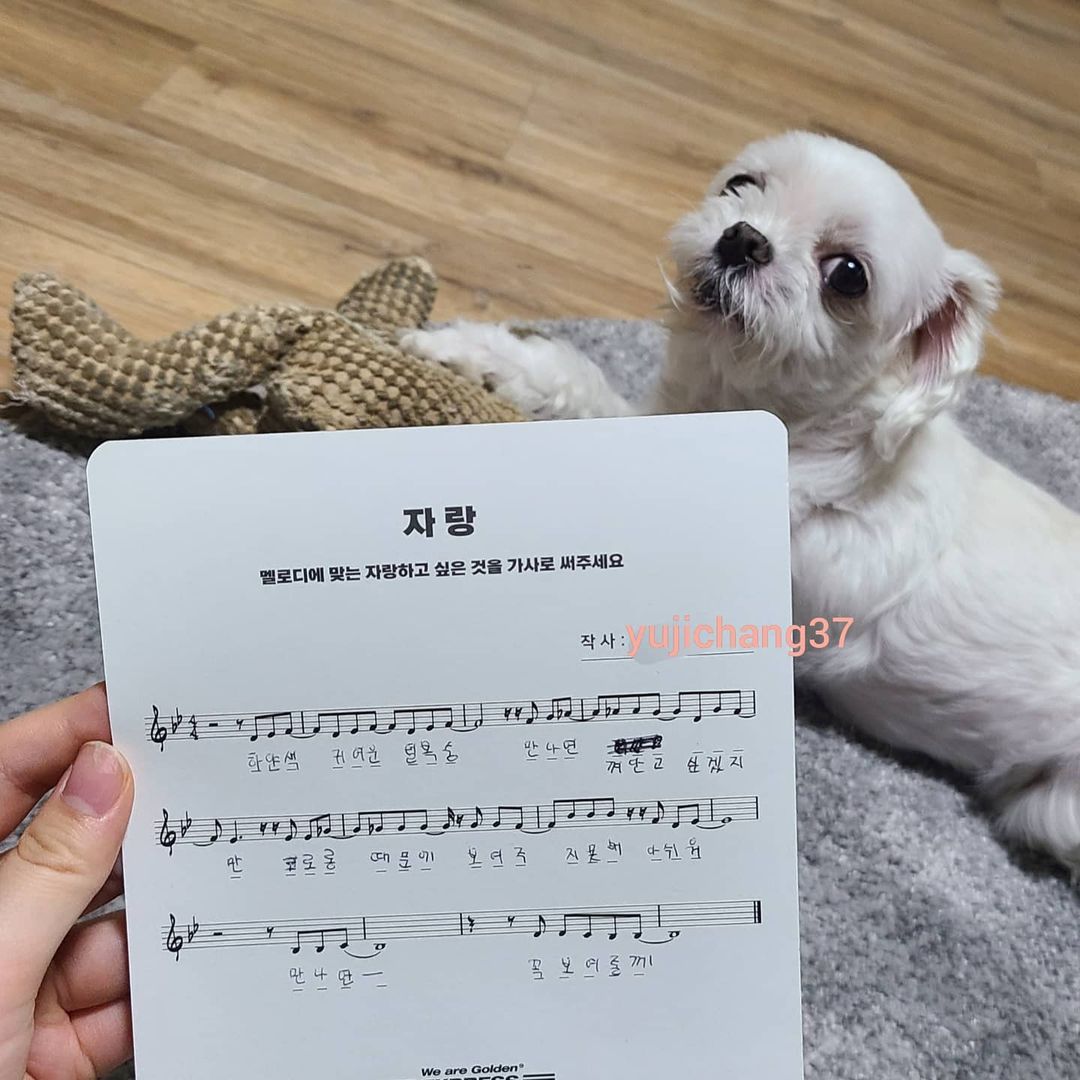 자랑
멜로디에 맞는 자랑하고 싶은 것을 가사로 써주세요
작사 : yujichang37
하얀색 귀여운 털복숭 만나면
껴안고 싶겠지
만 코로롱 때문에 보여주 지못해 아쉬워
만나면ㅡ 꼭 보여줄께
We are Golden®
EXPRESS